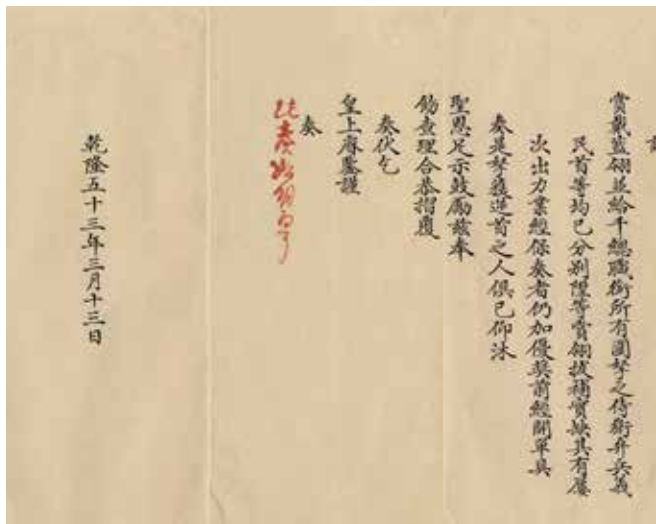 賞戴藍翎並給千總職銜所有圍拏之侍衛弁兵義
民首等均已分別陞等賞翎拔補實缺其有屢
次出力業經保奏者仍加優獎前經開單具
奏是拏獲逆首之人俱已仰沐
聖恩足示鼓勵茲奉
飭查理合恭摺覆
奏伏乞
皇上睿鑒謹
奏
乾隆五十三年三月十三日